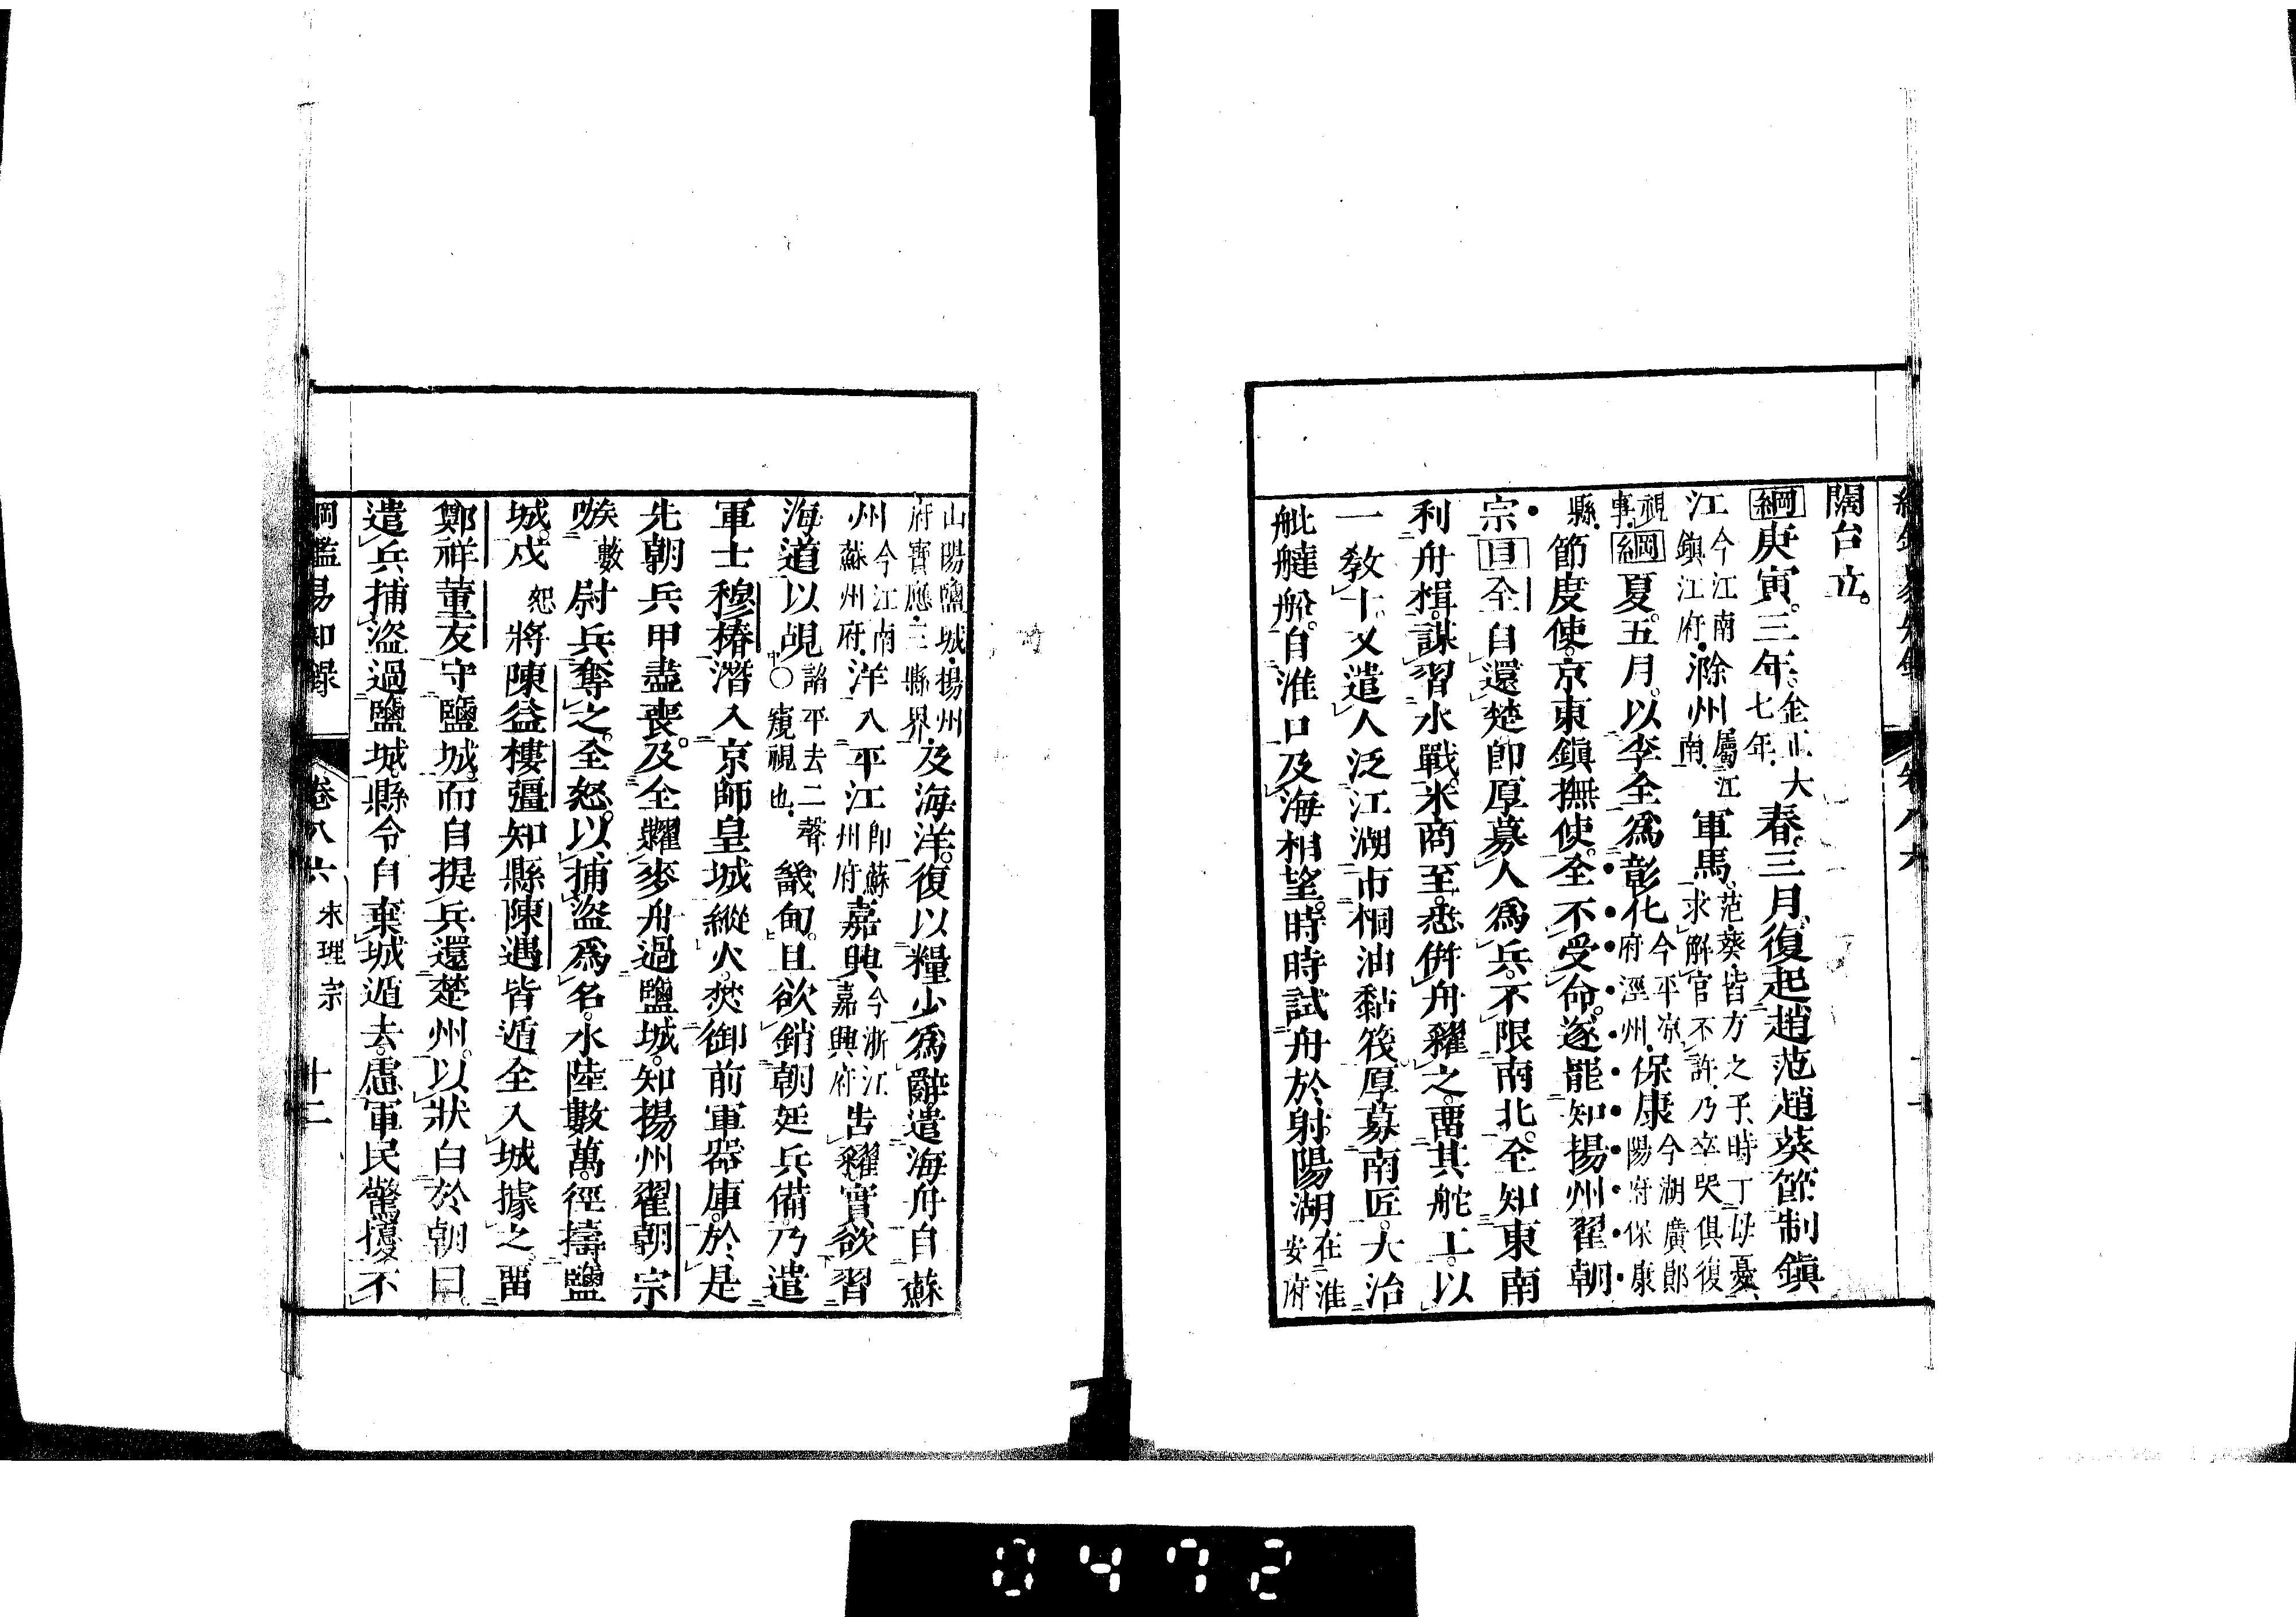 闊台立。
綱庚寅。三年。金正大七年。春。三月。復起趙范趙葵節制鎮
江今江南鎮江府。滁州屬江南。軍馬。范葵皆方之子、時丁母憂、求解官不許、乃卒哭俱復
視事。綱夏。五月。以李全爲彰化今平凉府涇州。保康今湖廣鄖陽府保康
縣。節度使。京東鎮撫使。全不受命。遂罷知揚州翟朝
宗。目全自還楚卽厚募人爲兵。不限南北。全知東南
利舟楫。謀習水戰。米商至。悉併舟糴之。畱其舵工。以
一教十。又遣人泛江湖市桐油黏筏。厚募南匠。大治
舭艖船。自淮口及海相望。時時試舟於射陽湖在淮安府
山陽鹽城、揚州府寶應三縣界及海洋。復以糧少爲辭。遣海舟自蘇
州今江南蘇州府。洋入平江卽蘇州府嘉興今浙江嘉興府告糴。實欲習
海道以覘諂平去二聲○窺視也。畿甸。且欲銷朝廷兵備。乃遣
軍士穆椿潛入京師皇城縱火。焚御前軍器庫。於是
先朝兵甲盡喪。及全糶麥舟過鹽城。知揚州翟朝宗
嗾數尉兵奪之。全怒。以捕盜爲名。水陸數萬。徑擣鹽
城。戍將陳益樓彊知縣陳遇皆遁全入城據之。畱
鄭祥董友守鹽城。而自提兵還楚州。以狀白於朝曰
遣兵捕盜過鹽城。縣令自棄城遁去。慮軍民驚擾。不
綱鑑易知録 卷八六 宋理宗 十二
0472